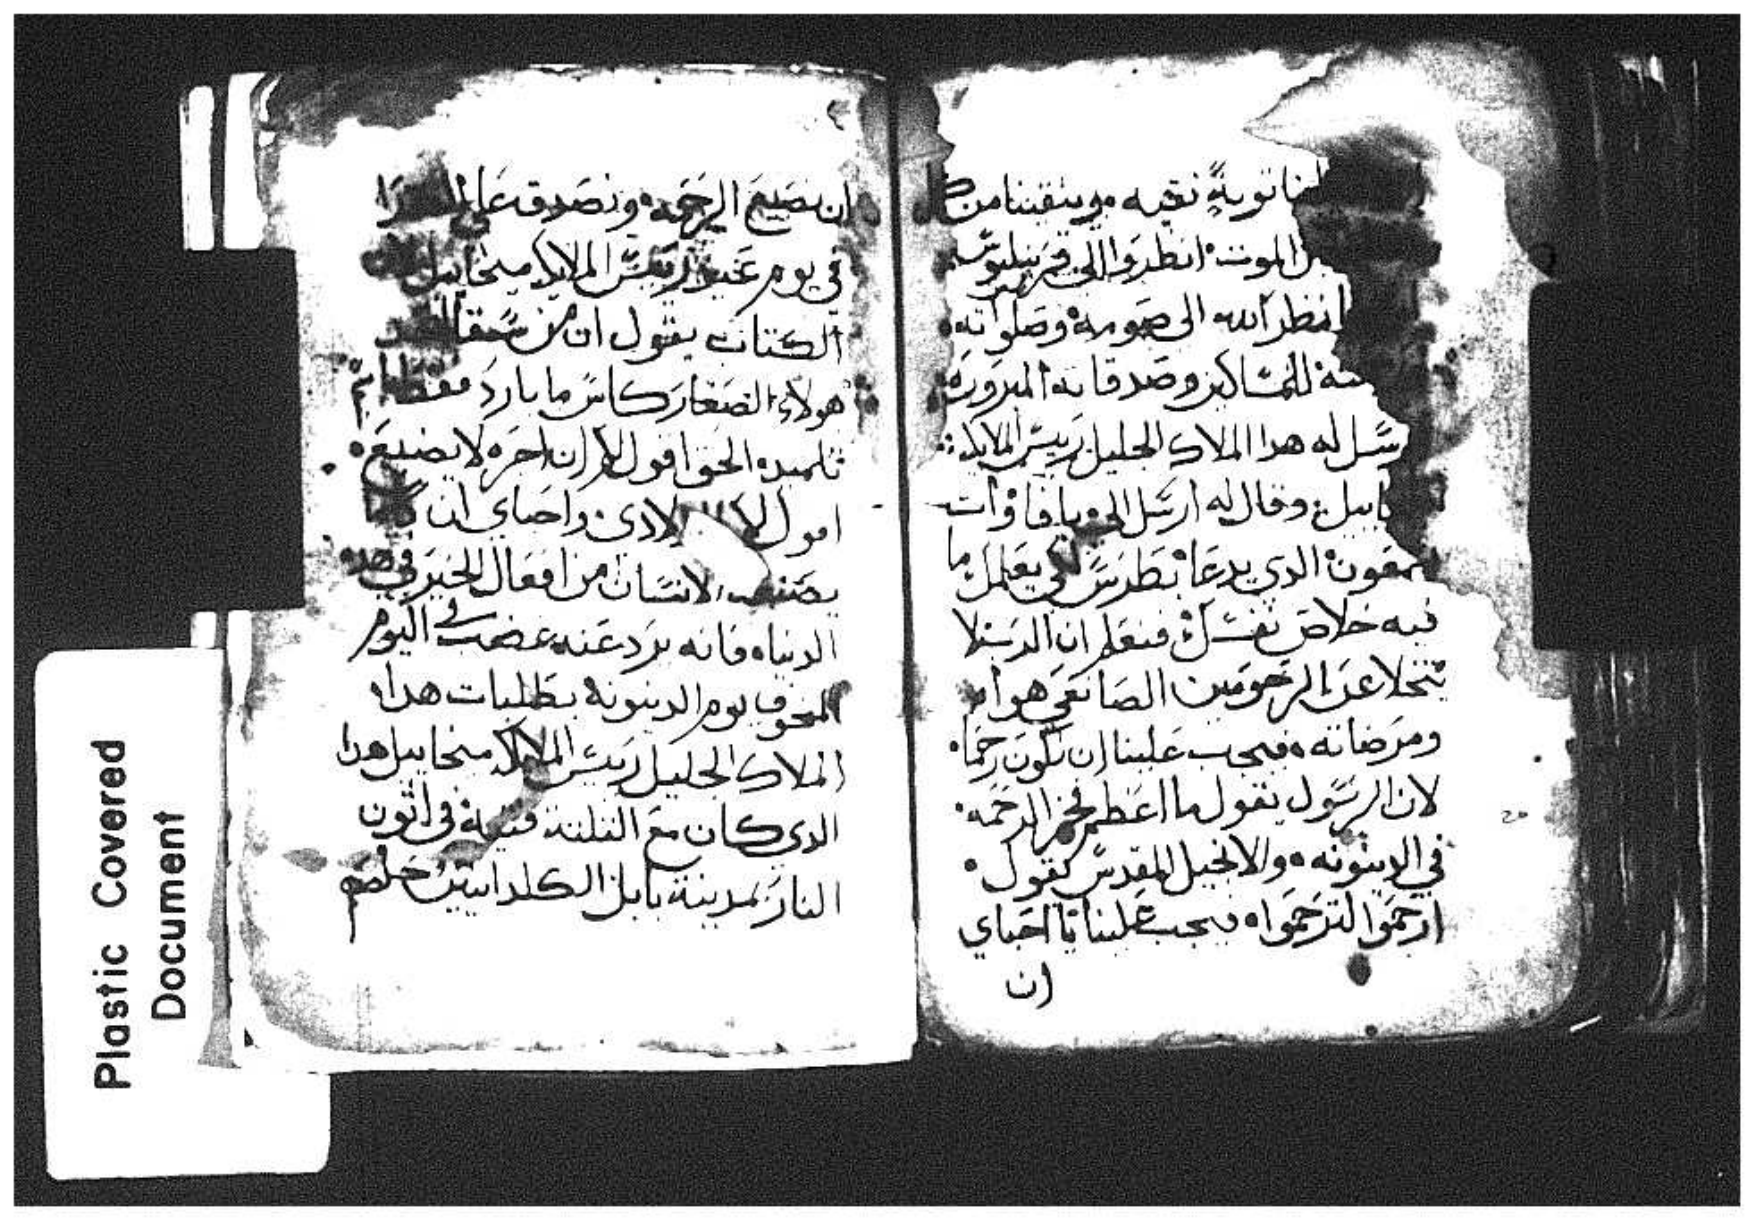 لنا توبةً نقيه وينقينا من
الموت انظروا الى قرنيليوس
انظر الله الى صومه وصلواته
للمساكين وصدقاته المبروره
سل له هدا الملاك الجليل رييس الملايكه
اييل وقال له ارسل الى يافا وات
معون الدي يدعا بطرس لكي يعلمك ما
فيه خلاص نفسك فنعلم ان الرب لا
يتخلا عن الرحومين الصانعي هواه
ومرضاته فيجب علينا ان نكون رحما
لان الرسول يقول ما اعظم فخر الرحمه
في الدينونه والانجيل المقدس يقول
ارحموا لترحموا فيجب علينا يا احباي
ان
ان نصنع الرحمه ونصدق على
في يوم عيد رييس الملايكه ميخاييل
الكتاب يقول ان من سقا
هولاء الصغار كاس ما بارد فقط باسم
تلميد الحق اقول لكم ان اجره لا يضيع
اقول يا اولادي واحباي ان
يصنعه الانسان من افعال الخير في هده
الدنيا فانه يرد عنه غضب اليوم
المخوف يوم الدينونه بطلبات هدا
الملاك الجليل رييس الملايكه ميخاييل هدا
الدي كان مع التلتة فتية في اتون
النار بمدينة بابل الكلدانيين خلصهم
20
Plastic Covered
Document